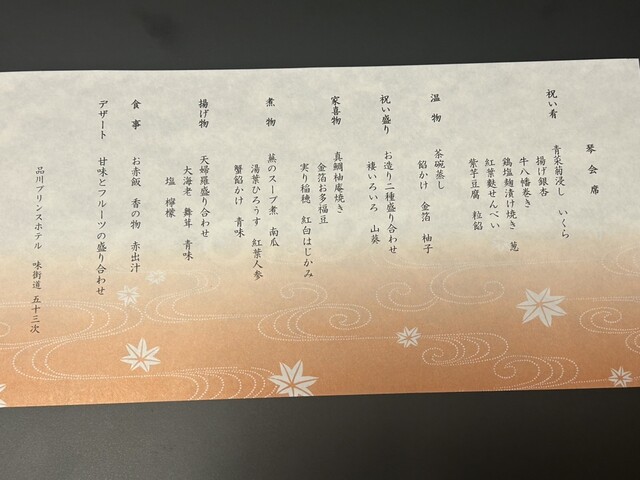 琴会席
祝い肴
青菜菊浸し いくら
揚げ銀杏
牛八幡巻き
鶏塩麹漬け焼き 葱
紅葉麩せんべい
紫芋豆腐 粒餡
温物
茶碗蒸し
餡かけ 金箔 柚子
祝い盛り
お造り二種盛り合わせ
褄いろいろ 山葵
家喜物
真鯛柚庵焼き
金箔お多福豆
実り稲穂 紅白はじかみ
煮物
蕪のスープ煮 南瓜
湯葉ひろうす 紅葉人参
蟹餡かけ 青味
揚げ物
天婦羅盛り合わせ
大海老 舞茸 青味
塩 檸檬
食事
お赤飯 香の物 赤出汁
デザート
甘味とフルーツの盛り合わせ
品川プリンスホテル 味街道 五十三次